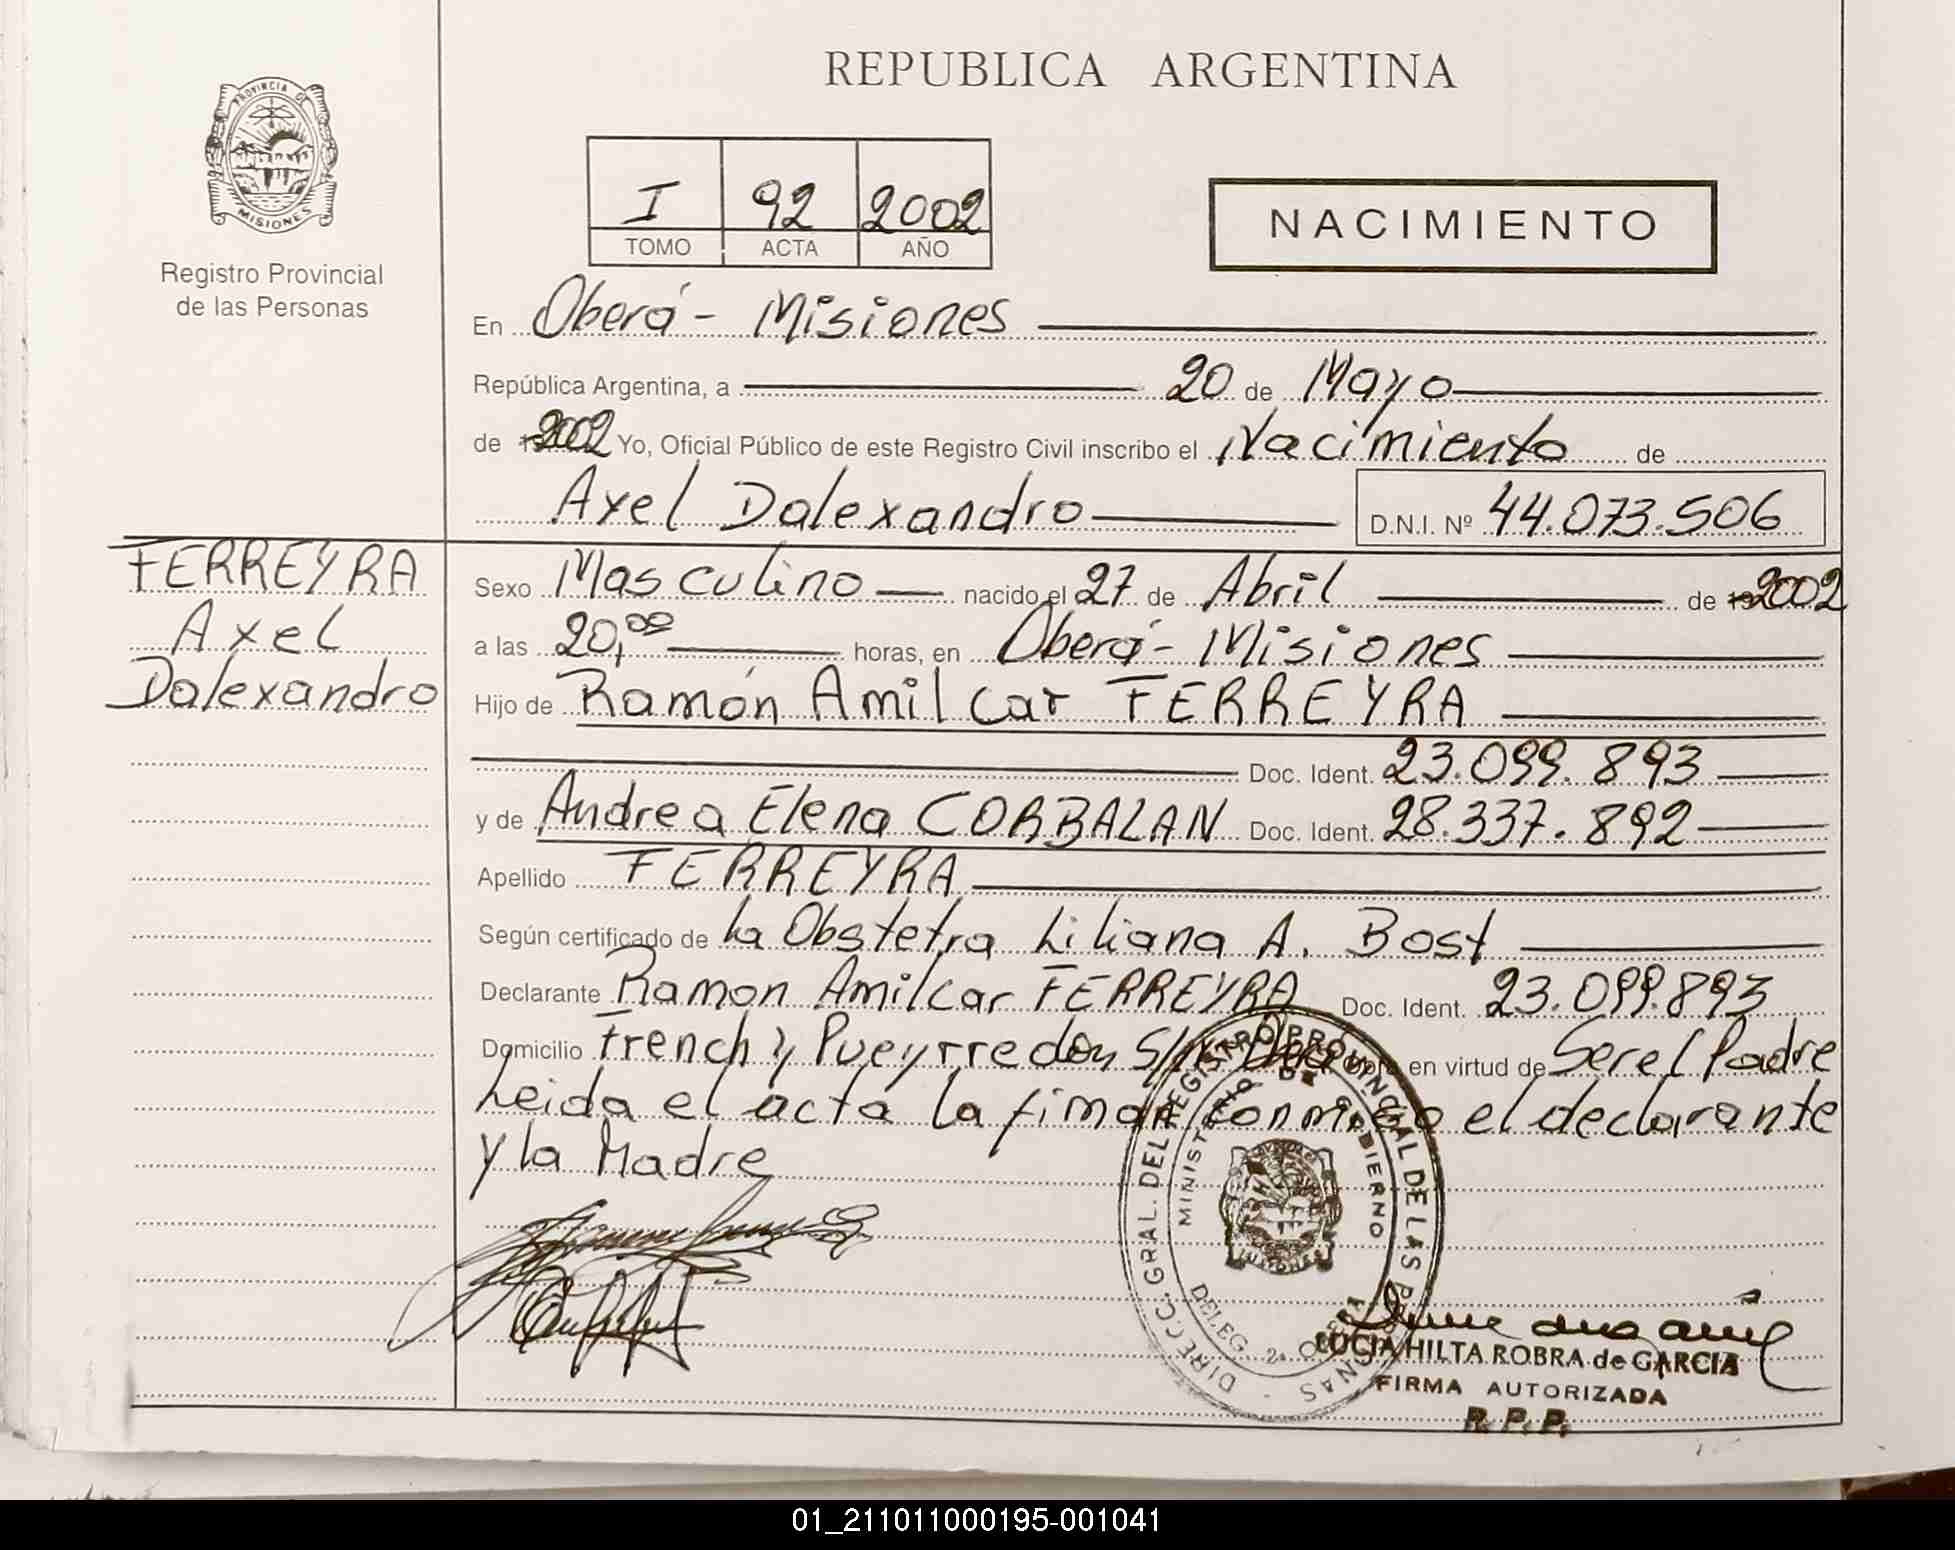 REPUBLICA ARGENTINA
PROVINCIA DE
MISIONES
Registro Provincial
de las Personas
I 92 2002
TOMO ACTA AÑO
NACIMIENTO
En Oberá - Misiones
República Argentina, a 20 de Mayo
de 2002 Yo, Oficial Público de este Registro Civil inscribo el Nacimiento de
Axel Dalexandro D.N.I. Nº 44.073.506
FERREYRA
Axel
Dalexandro
Sexo Masculino nacido el 27 de Abril de 2002
a las 20,00 horas, en Oberá - Misiones
Hijo de Ramón Amilcar FERREYRA
Doc. Ident. 23.099.893
y de Andrea Elena CORBALAN Doc. Ident. 28.337.892
Apellido FERREYRA
Según certificado de la Obstetra Liliana A. Bost
Declarante Ramon Amilcar FERREYRA Doc. Ident. 23.099.893
Domicilio French y Pueyrredon S/Nº en virtud de Ser el Padre
Leida el acta la firman conmigo el declarante
y la Madre
DIRECC. GRAL. DEL REGISTRO PROVINCIAL DE LAS PERSONAS
MINISTERIO DE GOBIERNO
DELEG. 2ª OBERA
MISIONES
LUCIA HILTA ROBRA de GARCIA
FIRMA AUTORIZADA
R. P. P.
01_211011000195-001041